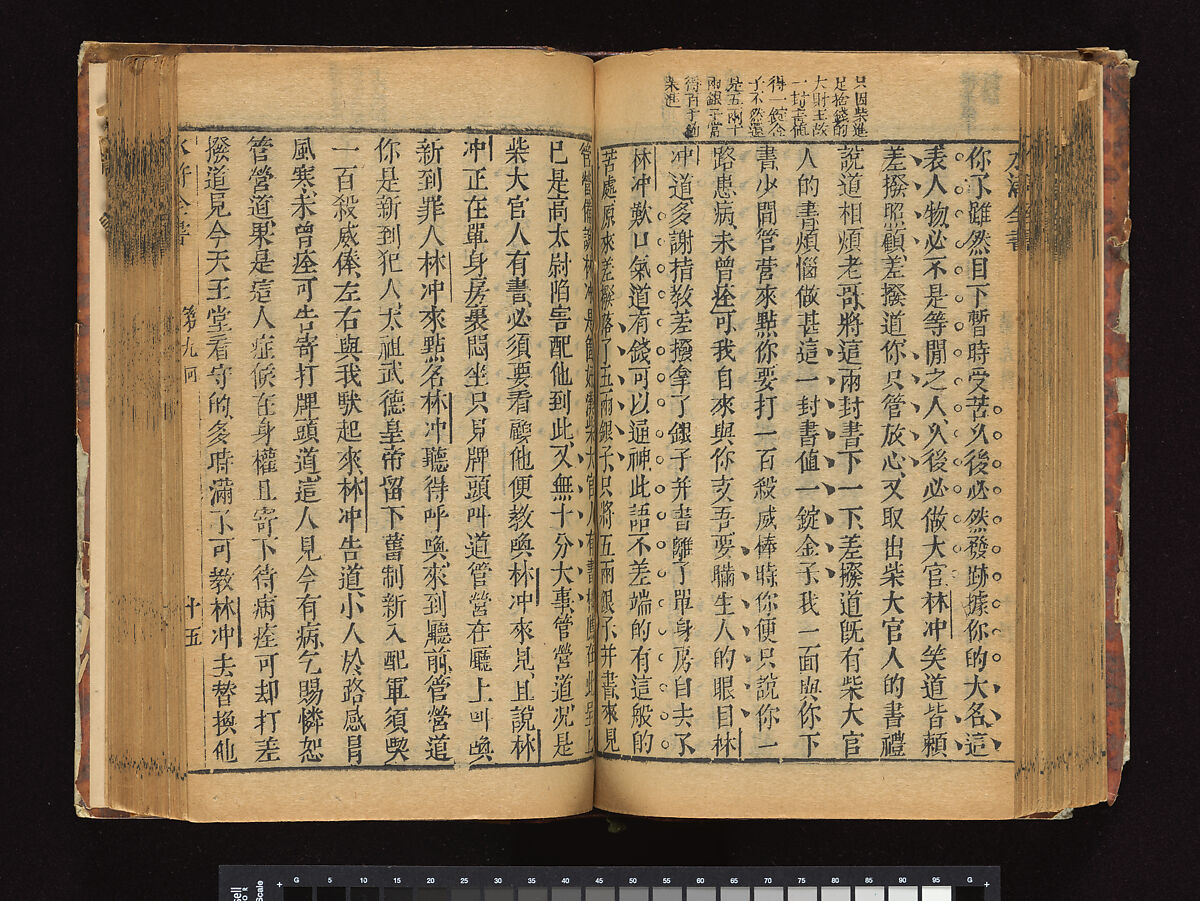 只因柴進
足捨錢的
大財主故
一封書值
得一錠金
子不然還
是五兩十
兩銀子當
得百十道
柴進
水滸全書
你了雖然目下暫時受苦久後必然發跡據你的大名這
表人物必不是等閒之人久後必做大官林冲笑道皆賴
差撥照顧差撥道你只管放心又取出柴大官人的書禮
說道相煩老哥將這兩封書下一下差撥道旣有柴大官
人的書煩惱做甚這一封書值一錠金子我一面與你下
書少間管營來點你要打一百殺威棒時你便只說你一
路患病未曾痊可我自來與你支吾要瞞生人的眼目林
冲道多謝指教差撥拿了銀子并書離了單身房自去了
林冲歎口氣道有錢可以通神此語不差端的有這般的
苦處原來差撥落了五兩銀子只將五兩銀子并書來見
管營備說林冲是個好漢柴大官人有書相薦在此呈上
已是高太尉陷害配他到此又無十分大事管營道況是
柴大官人有書必須要看顧他便教喚林冲來見且說林
冲正在單身房裏悶坐只見牌頭叫道管營在廳上叫喚
新到罪人林冲來點名林冲聽得呼喚來到廳前管營道
你是新到犯人太祖武德皇帝留下舊制新入配軍須喫
一百殺威俸左右與我馱起來林冲告道小人於路感冒
風寒未曾痊可告寄打牌頭道這人見今有病乞賜憐恕
管營道果是這人症候在身權且寄下待病痊可却打差
撥道見今天王堂看守的多時滿了可教林冲去替換他
水滸全書
第九回
十五